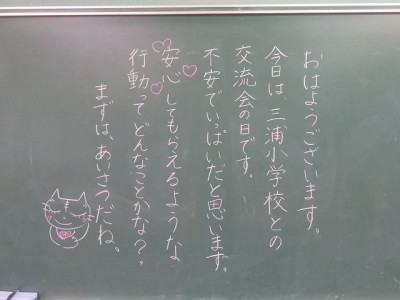 おはようございます。
今日は、三浦小学校との
交流会の日です。
不安でいっぱいだと思います。
安心してもらえるような
行動ってどんなことかな？。
まずは、あいさつだね。